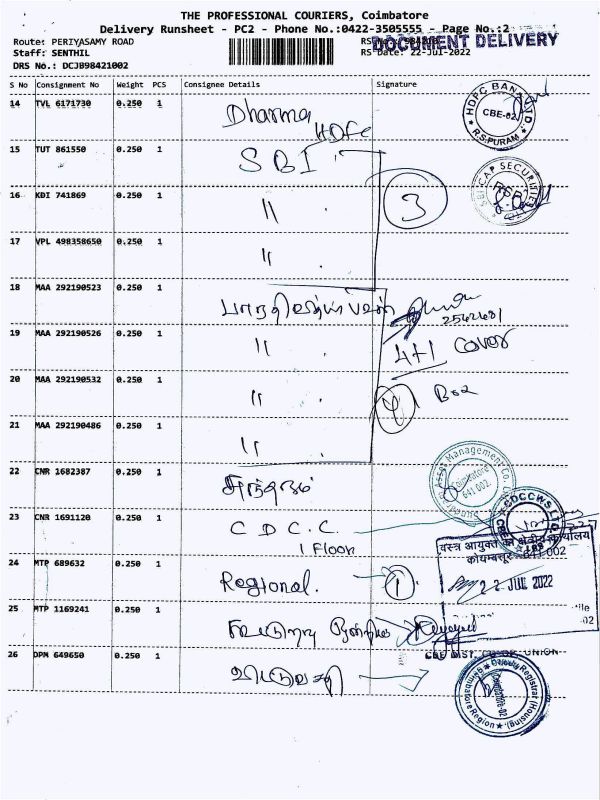 THE PROFESSIONAL COURIERS, Coimbatore
Delivery Runsheet - PC2 - Phone No.:0422-3505555 - Page No.:2
DOCUMENT DELIVERY
Route: PERIYASAMY ROAD
Staff: SENTHIL
RS Date: 22-Jul-2022
DRS No.: DCJB98421002
S No Consignment No Weight PCS Consignee Details Signature
14 TVL 6171730 0.250 1 Dharma HDFC
HDFC BANK LTD.
CBE-02
R.S.PURAM
15 TUT 861550 0.250 1 SBI
SBI CAP SECURITIES
16 KDI 741869 0.250 1 " 3
17 VPL 498358650 0.250 1 "
18 MAA 292190523 0.250 1
2542481
19 MAA 292190526 0.250 1 " 4+1 Cover
20 MAA 292190532 0.250 1 " 4 1 Box
21 MAA 292190486 0.250 1 "
Asset Management Co.
Coimbatore
641 002
22 CNR 1682387 0.250 1 சுந்தரம்
23 CNR 1691120 0.250 1 C D C C.
1 Floor
CDCCWS LTD
वस्त्र आयुक्त का क्षेत्रीय कार्यालय
कोयम्बत्तूर 641 002
24 MTP 689632 0.250 1 Regional. 1
22 JUL 2022
25 MTP 1169241 0.250 1
CBE DIST. CO-OP. UNION
26 DPM 649650 0.250 1
Deputy Registrar (Housing)
Coimbatore-02
Coimbatore Region